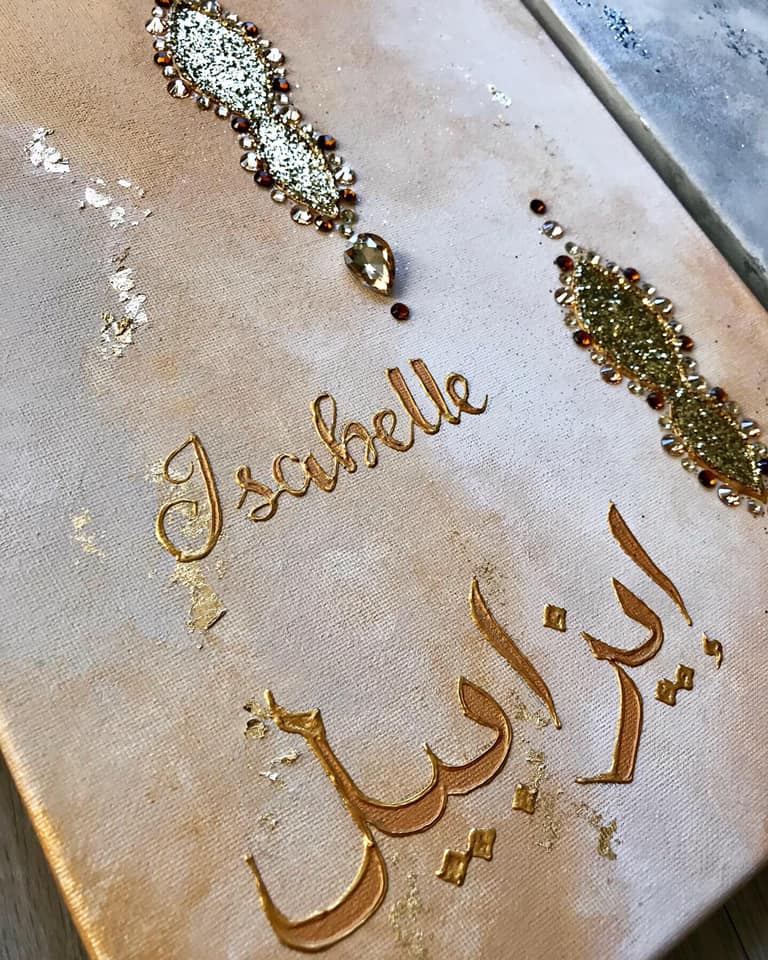 Isabelle
إيزابيل